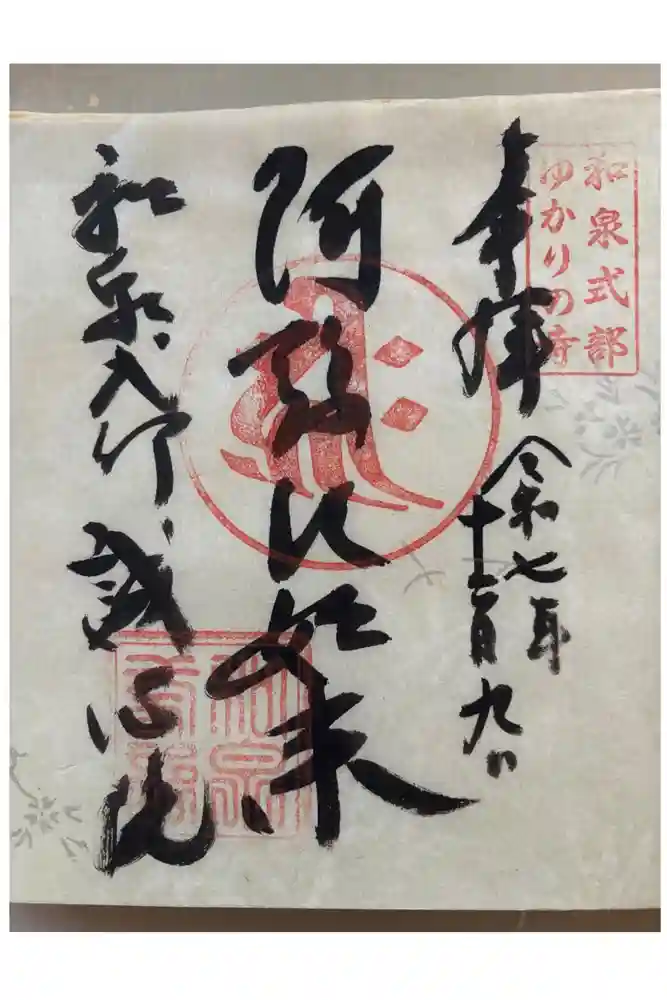 和泉式部
ゆかりの寺
奉拝
令和七年
十二月九日
阿弥陀如来
和泉式部
誠心院